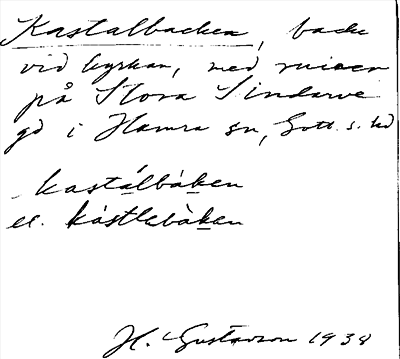 Kastalbacken, backe
vid kyrkan, med ruinen
på Stora Sindarve
gd i Hamra sn, Gotl. s. hd
kastálbàken
el. kástlebàken
H. Gustavson 1938